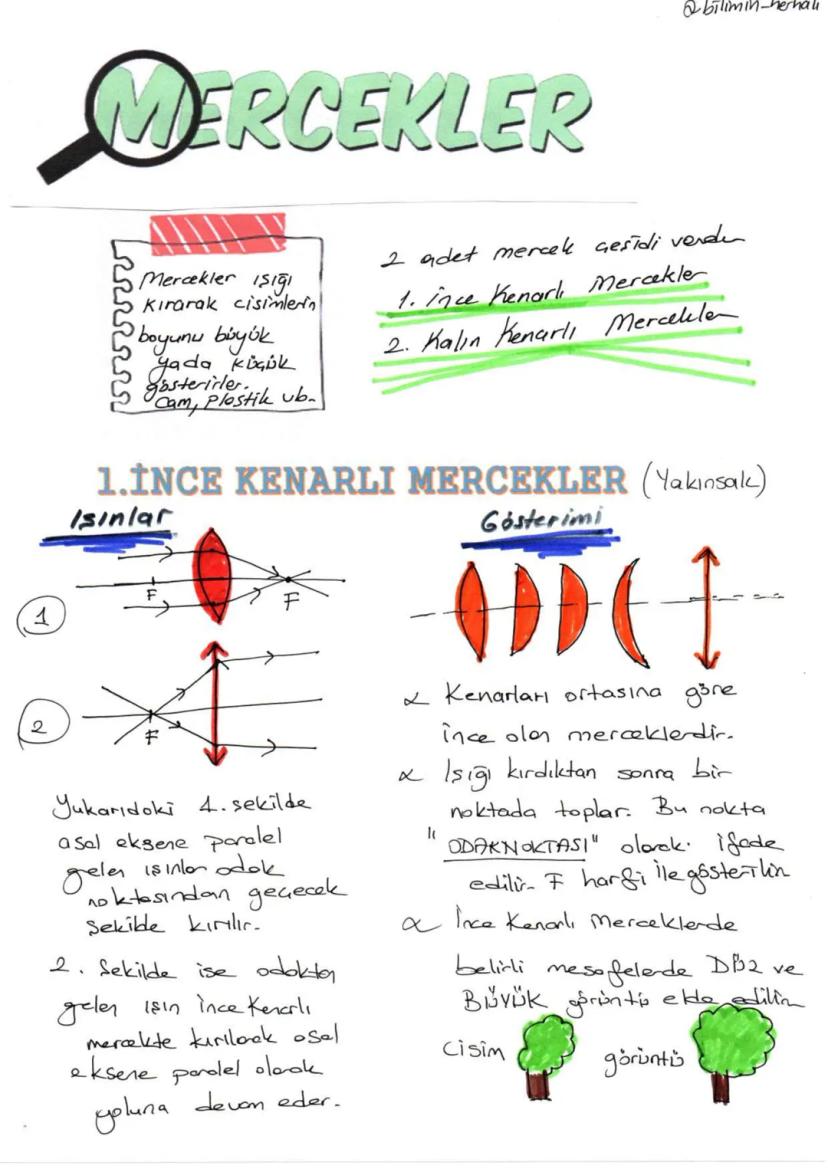 @bilimin_herhali
MERCEKLER
Mercekler ışığı
kırarak cisimlerin
boyunu büyük
yada küçük
gösterirler.
Cam, plastik vb.
2 adet mercek çeşidi vardır
1. İnce Kenarlı Mercekler
2. Kalın Kenarlı Mercekler
1.İNCE KENARLI MERCEKLER (Yakınsak)
Işınlar
F
F
1
F
2
Yukarıdaki 1. şekilde
asal eksene paralel
gelen ışınlar odak
noktasından geçecek
şekilde kırılır.
2. Şekilde ise odaktan
gelen ışın İnce Kenarlı
mercekte kırılarak asal
eksene paralel olarak
yoluna devam eder.
Gösterimi
α Kenarları ortasına göre
ince olan merceklerdir.
α Işığı kırdıktan sonra bir
noktada toplar. Bu nokta
"ODAKNOKTASI" olarak. ifade
edilir. F harfi ile gösterilir
α İnce Kenarlı Merceklerde
belirli mesafelerde DÜZ ve
BÜYÜK görüntü elde edilir
cisim
görüntü